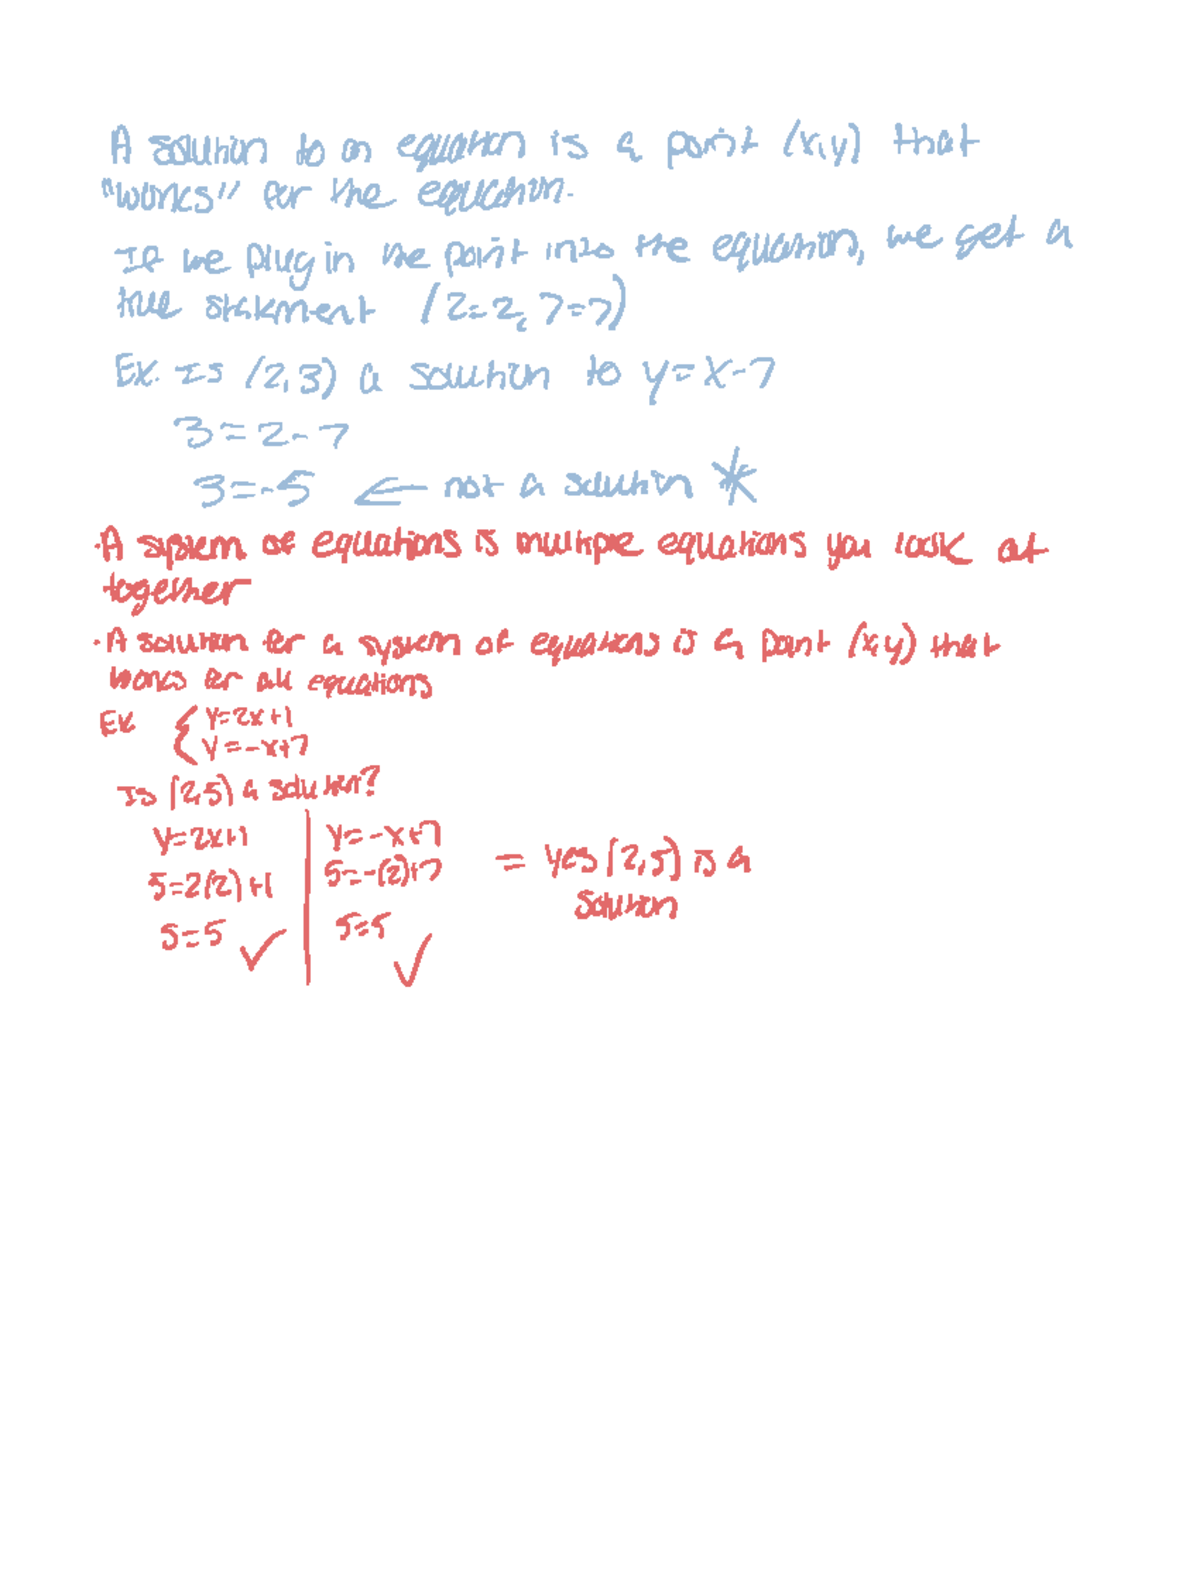 A solution to an equation is a point (x,y) that
"works" for the equation.
If we plug in the point into the equation, we get a
true statement (2=2, 7=7)
Ex. Is (2,3) a solution to y=x-7
3=2-7
3=-5 ← not a solution *
·A system of equations is multiple equations you look at
together
·A solution for a system of equations is a point (x,y) that
works for all equations
Ex { y=2x+1
y=-x+7
Is (2,5) a solution?
y=2x+1 | y=-x+7
5=2(2)+1 | 5=-(2)+7 = yes (2,5) is a
solution
5=5 ✓ | 5=5 ✓